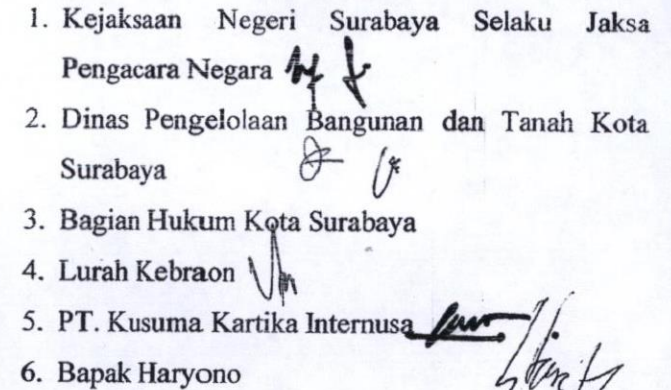 1. Kejaksaan Negeri Surabaya Selaku Jaksa
Pengacara Negara
2. Dinas Pengelolaan Bangunan dan Tanah Kota
Surabaya
3. Bagian Hukum Kota Surabaya
4. Lurah Kebraon
5. PT. Kusuma Kartika Internusa
6. Bapak Haryono